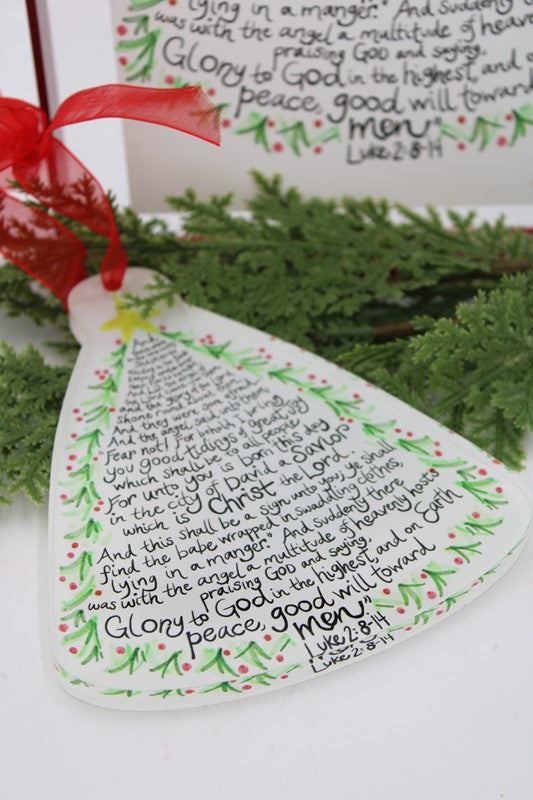 lying in a manger." And suddenly
was with the angel a multitude of heave
praising GOD and saying.
Glory to God in the highest, and o
peace, good will toward
men"
Luke 2:8-14
and the glory of the Lord
Shone round
they were sore afraid
And the angel said unto them
"Fear not! For behold, I bring
you good tidings of great joy
which shall be to all people
For unto you is born this day
in the city of David a Savior
which is Christ the Lord.
And this shall be a sign unto you; ye shall
find the babe wrapped in swaddling clothes,
lying in a manger." And suddenly there
was with the angel a multitude of heavenly hosts
praising GOD and saying.
Glory to God in the highest, and on Earth
peace, good will toward
men"
Luke 2:8-14
Luke 2:8-14